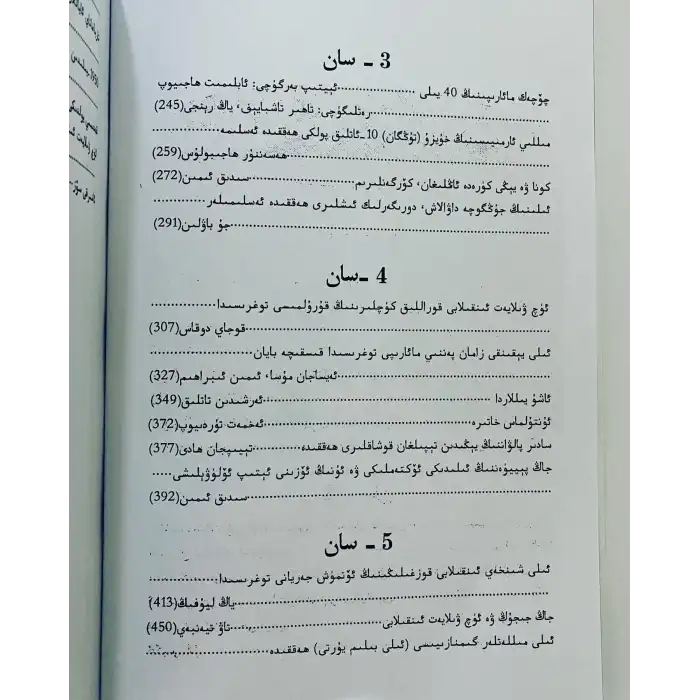 3 ـ سان
چۆچەك مائارىپىنىڭ 40 يىلى .................. ئېيتىپ بەرگۈچى: ئابلىمىت ھاجىيوپ
..................رەتلىگۈچى: تاھىر تاشبايېف، ياڭ رېنجى(245)
مىللىي ئارمىيىسىنىڭ خۇيزۇ (تۇڭگان) 10ـ ئاتلىق پولكى ھەققىدە ئەسلىمە..................
..................ھەسەنئۇر ھاجىبولۇس(259)
كونا ۋە يېڭى كۈرەدە ئاڭلىغان، كۆرگەنلىرىم..................سىدىق ئىمىن(272)
ئىلىنىڭ جۇڭگوچە داۋالاش، دورىگەرلىك ئىشلىرى ھەققىدە ئەسلىمىلەر..................
..................جۇ باۋلىن(291)
4 ـ سان
ئۈچ ۋىلايەت ئىنقىلابى قوراللىق كۈچلىرىنىڭ قۇرۇلمىسى توغرىسىدا..................
..................قوجاي دوقاس(307)
ئىلى يېقىنقى زامان پەننىي مائارىپى توغرىسىدا قىسقىچە بايان..................
..................ئەيساجان مۇسا، ئىمىن ئىبراھىم(327)
ئاشۇ يىللاردا..................ئەرشىدىن تاتلىق(349)
ئۇنتۇلماس خاتىرە..................ئەخمەت تۆرەيوپ(372)
سادىر پالۋاننىڭ يېڭىدىن تېپىلغان قوشاقلىرى ھەققىدە..................تېيىپجان ھادى(377)
جاڭ پېييۈەننىڭ ئىلىدىكى ئۆكتەملىكى ۋە ئۇنىڭ ئۆزىنى ئېتىپ ئۆلۈۋېلىشى.....
..................سىدىق ئىمىن(392)
5 ـ سان
ئىلى شىنخەي ئىنقىلابى قوزغىلىڭىنىڭ ئۆتمۈش جەريانى توغرىسىدا..................
..................ياڭ ليۇفىڭ(413)
جاڭ جىجۇڭ ۋە ئۈچ ۋىلايەت ئىنقىلابى..................تاۋ تيەنبەي(450)
ئىلى مىللەتلەر گىمنازىيىسى (ئىلى بىلىم يۇرتى) ھەققىدە..................